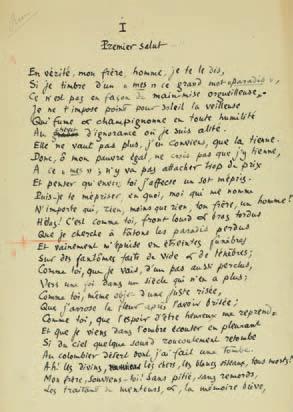 I
Premier salut
En vérité, mon frère, homme, je te le dis,
Si je timbre d'un « mes » ce grand mot « paradis »,
Ce n'est pas en façon de main-mise orgueilleuse.
Je ne t'impose point pour soleil la veilleuse
Qui fume et champignonne en toute humilité
Au d'ignorance où je suis alité.
Elle ne vaut pas plus, j'en conviens, que la tienne.
Donc, ô mon pauvre égal, ne crois pas que j'y tienne,
A ce « mes » ; n'y va pas attacher trop de prix
Et penser qu'envers toi j'affecte un sot mépris.
Puis-je te mépriser en quoi, moi qui me nomme
N'importe qui, rien, moins que rien, ton frère, un homme ?
Hélas ! C'est comme toi, front lourd et bras tordus
Que je cherche à tâtons les paradis perdus
Et vainement m'épuise en étreintes funèbres
Sur des fantômes faits de vide et de ténèbres ;
Comme toi, que je vais, d'un pas aussi perclus,
Vers une foi dans un siècle qui n'en a plus ;
Comme toi, même objet d'une juste risée,
Que j'arrose la fleur après l'avoir brisée ;
Comme toi, que l'espoir d'être heureux me reprend
Et que je viens dans l'ombre écouter en pleurant
Si du ciel quelque sourd roucoulement retombe
Au colombier désert dont j'ai fait une tombe.
Ah ! les divins, les chers, les blancs oiseaux, tous morts !
Mon frère, souviens-toi ! Sans pitié, sans remords,
Les traitant de menteurs, et, la mémoire brève,